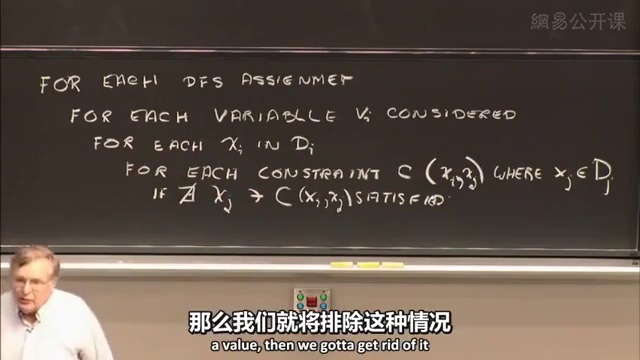 網易公开课
FOR EACH DFS ASSIGNMET
FOR EACH VARIABLLE Vi CONSIDERED
FOR EACH Xi IN Di
FOR EACH CONSTRAINT C (xi,xj) WHERE xj ∈ Dj
IF ∄ xj ∋ C(xi,xj) SATISFIED
那么我们就将排除这种情况
a value, then we gotta get rid of it